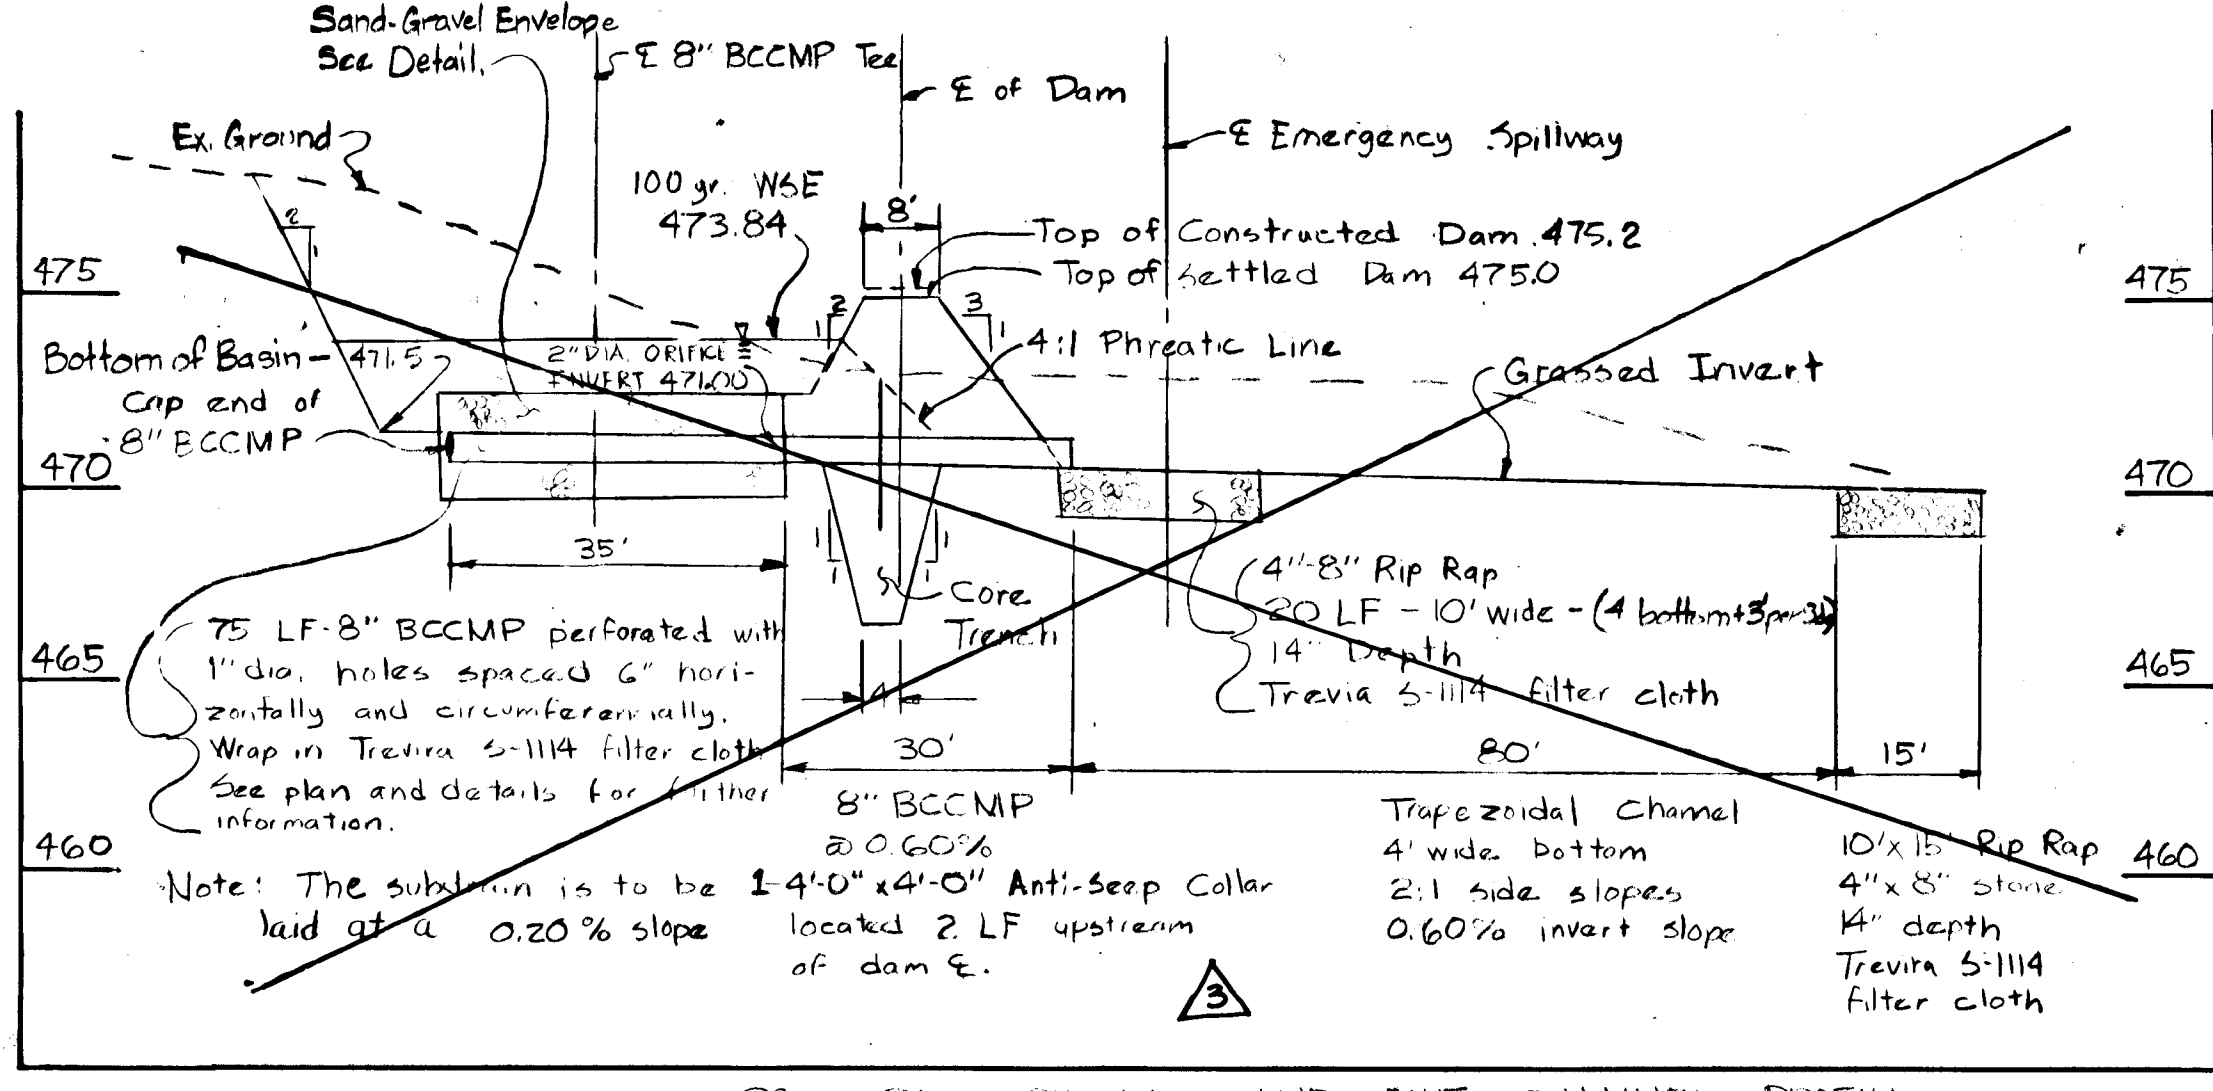 Sand-Gravel Envelope
See Detail.
℄ 8" BCCMP Tee
℄ of Dam
Ex. Ground
℄ Emergency Spillway
100 yr. WSE
473.84
8'
2
1
Top of Constructed Dam 475.2
Top of Settled Dam 475.0
475
475
2
1
3
1
4:1 Phreatic Line
Bottom of Basin - 471.5
2" DIA. ORIFICE
INVERT 471.00
Grassed Invert
Cap end of
8" BCCMP
470
470
35'
1
1
1
1
Core
Trench
4"-8" Rip Rap
20 LF - 10' wide - (4 bottom + 3' per
14" Depth
Trevia S-1114 filter cloth
75 LF-8" BCCMP perforated with
1" dia. holes spaced 6" hori-
zontally and circumferencially.
Wrap in Trevira S-1114 filter cloth
See plan and details for further
information.
465
465
4'
30'
80'
15'
8" BCCMP
@ 0.60%
Trapezoidal Channel
4' wide bottom
2:1 side slopes
0.60% invert slope
10' x 15' Rip Rap
4" x 8" stone
14" depth
Trevira S-1114
filter cloth
460
460
Note: The subdrain is to be
laid at a 0.20% slope
1-4'-0" x 4'-0" Anti-Seep Collar
located 2 LF upstream
of dam ℄.
3